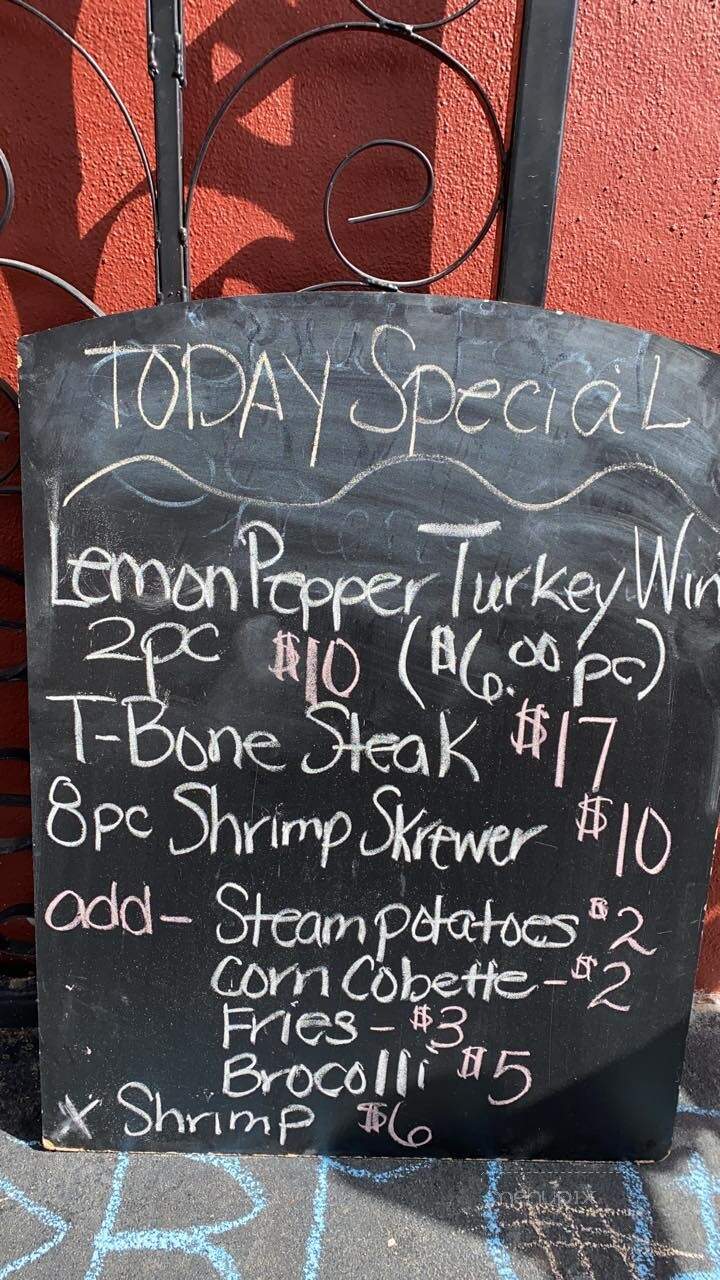 TODAY Special
Lemon Pepper Turkey Win
2pc $10 ($6.00 pc)
T-Bone Steak $17
8pc Shrimp Skrewer $10
add - Steam potatoes $2
Corn Cobette - $2
Fries - $3
Brocolli $5
x Shrimp $6
menupix